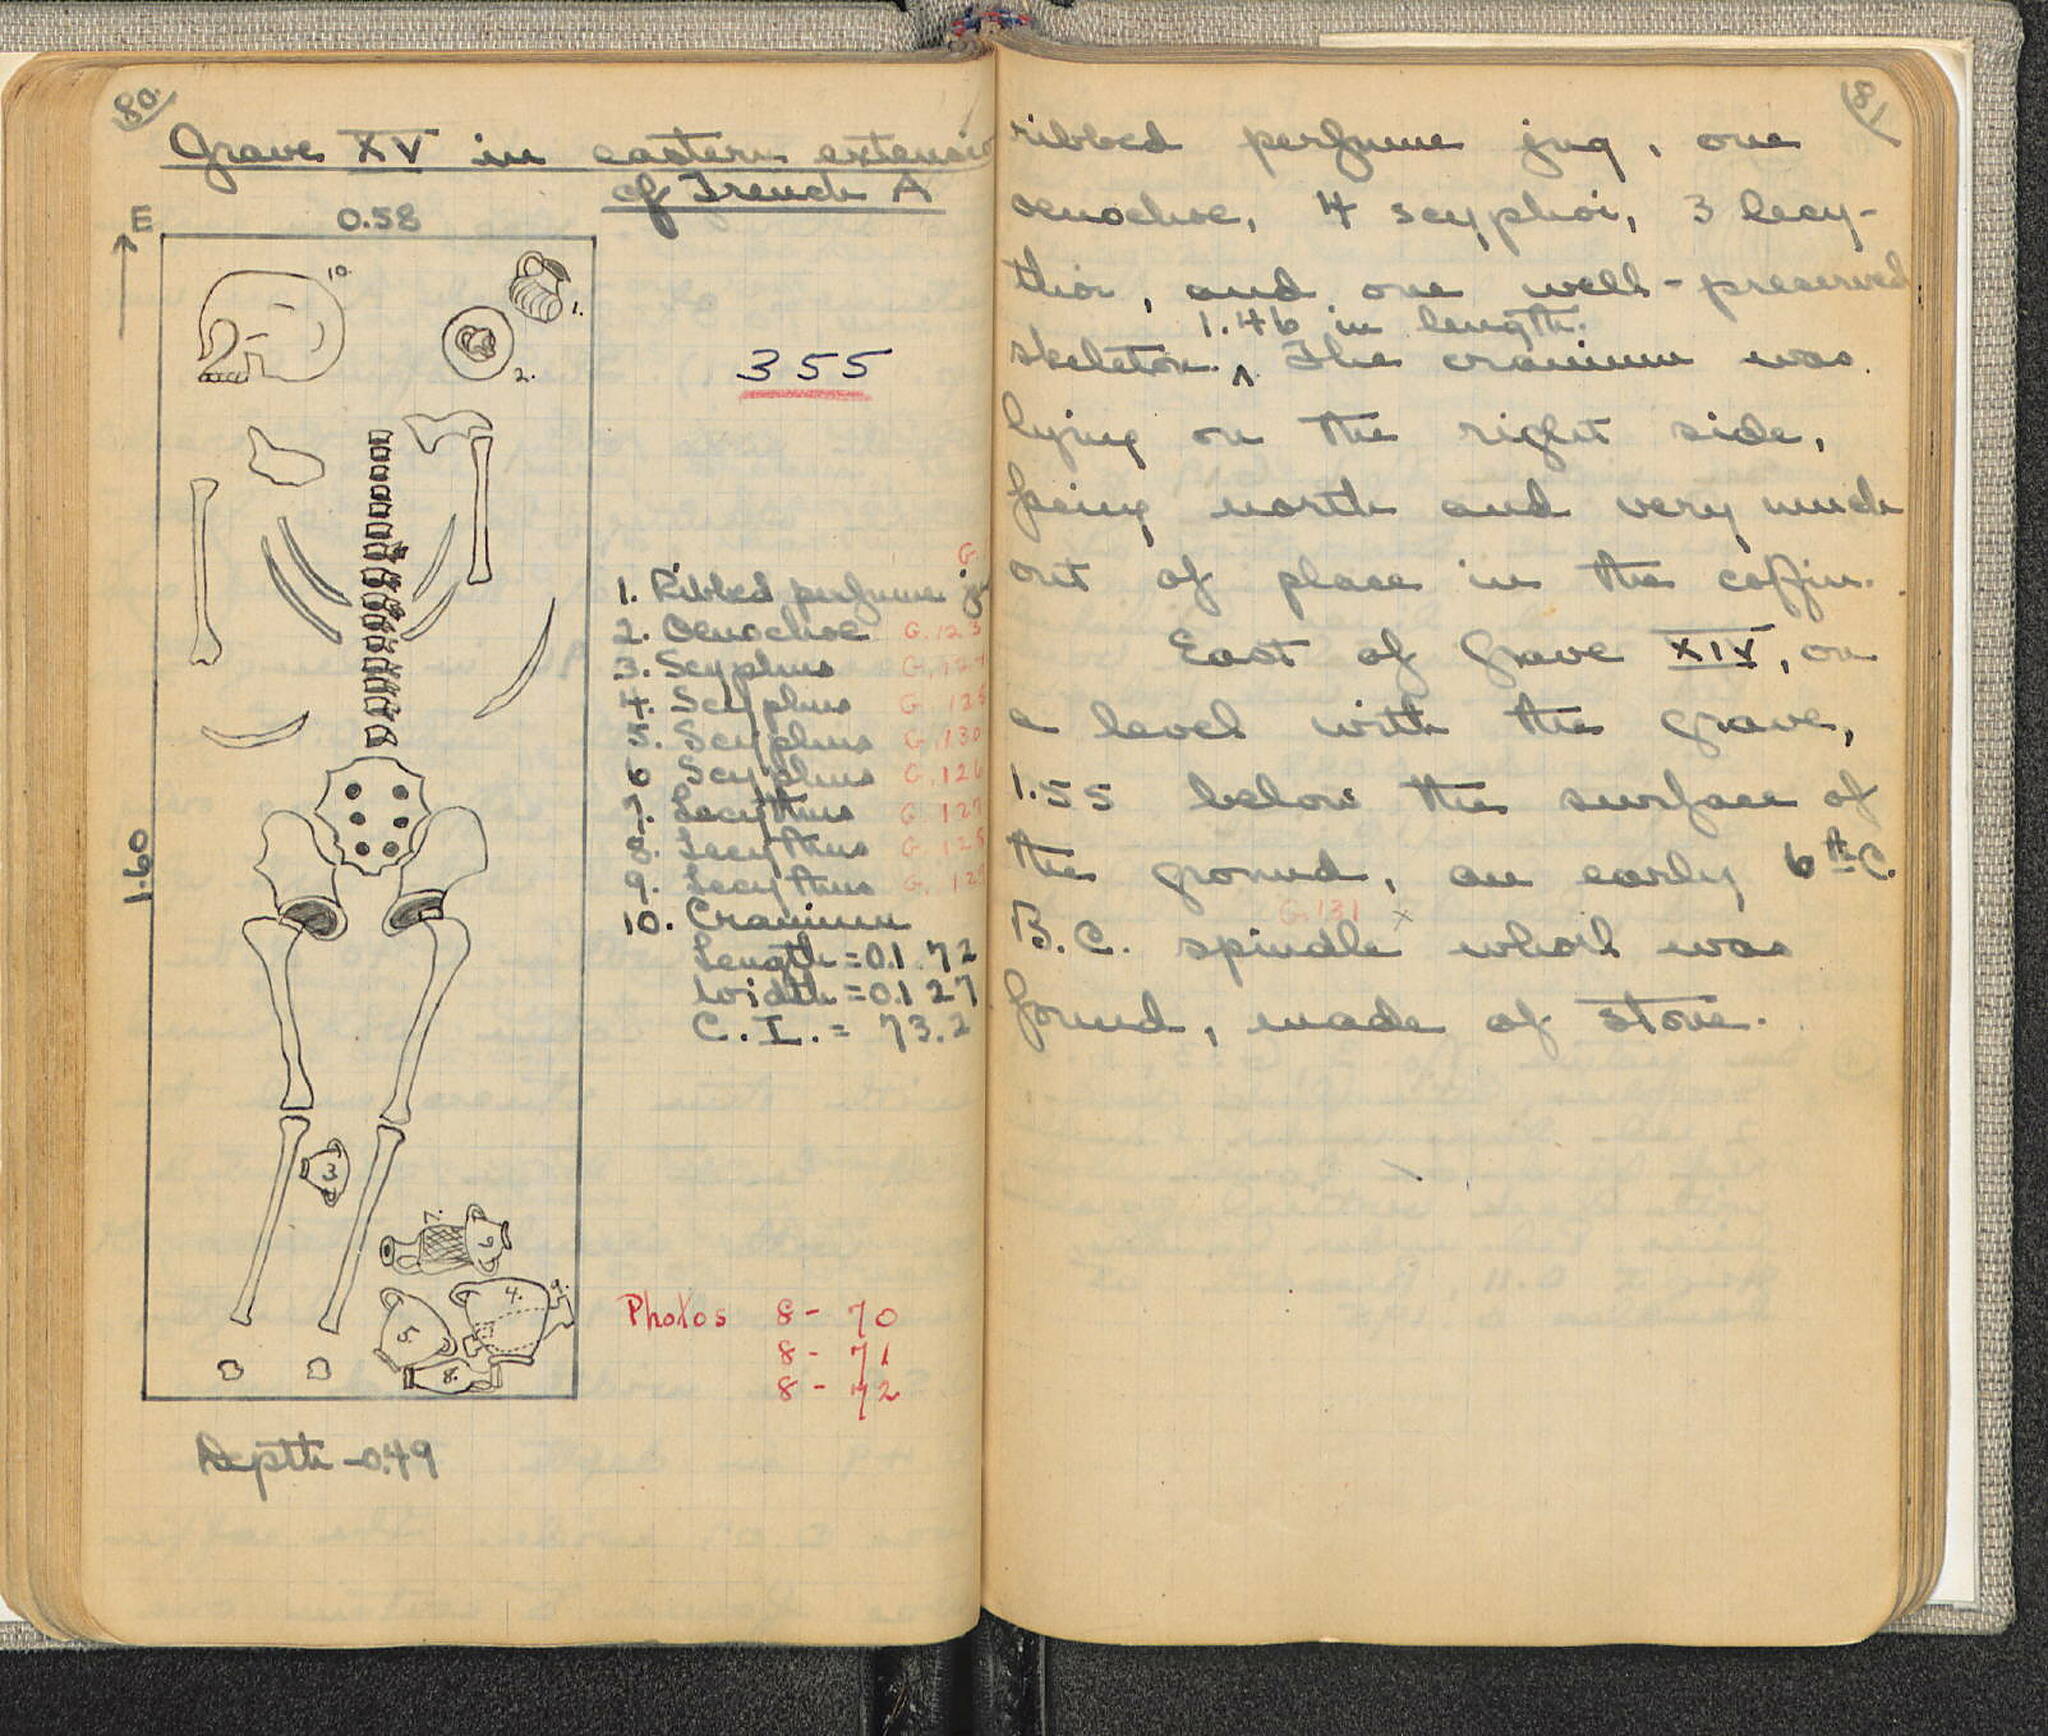 80
Grave XV in eastern extensio
of Trench A
E
0.58
10.
1.
2.
355
1.60
G.
1. Ribbed perfume ju
2. Oenochoe G. 123
3. Scyphus G. 12
4. Scyphus G. 125
5. Scyphus G. 130
6 Scyphus G. 126
7. Lecythus G. 127
8. Lecythus G. 128
9. Lecythus G. 12
10. Cranium
Length = 0.172
Width = 0.127
C. I. = 73.2
3
7.
6
4.
9.
5.
8.
Photos 8 - 70
8 - 71
8 - 72
Depth - 0.49
8
ribbed perfume jug, one
oenochoe, 4 scyphoi, 3 lecy-
thoi, and one well-preserved
1.46 in length.
skeleton. ^ The cranium was
lying on the right side,
facing north and very much
out of place in the coffin.
East of Grave XIV, on
a level with the grave,
1.55 below the surface of
the ground, an early 6th C.
G.131 x
B.C. spindle whorl was
found, made of stone.